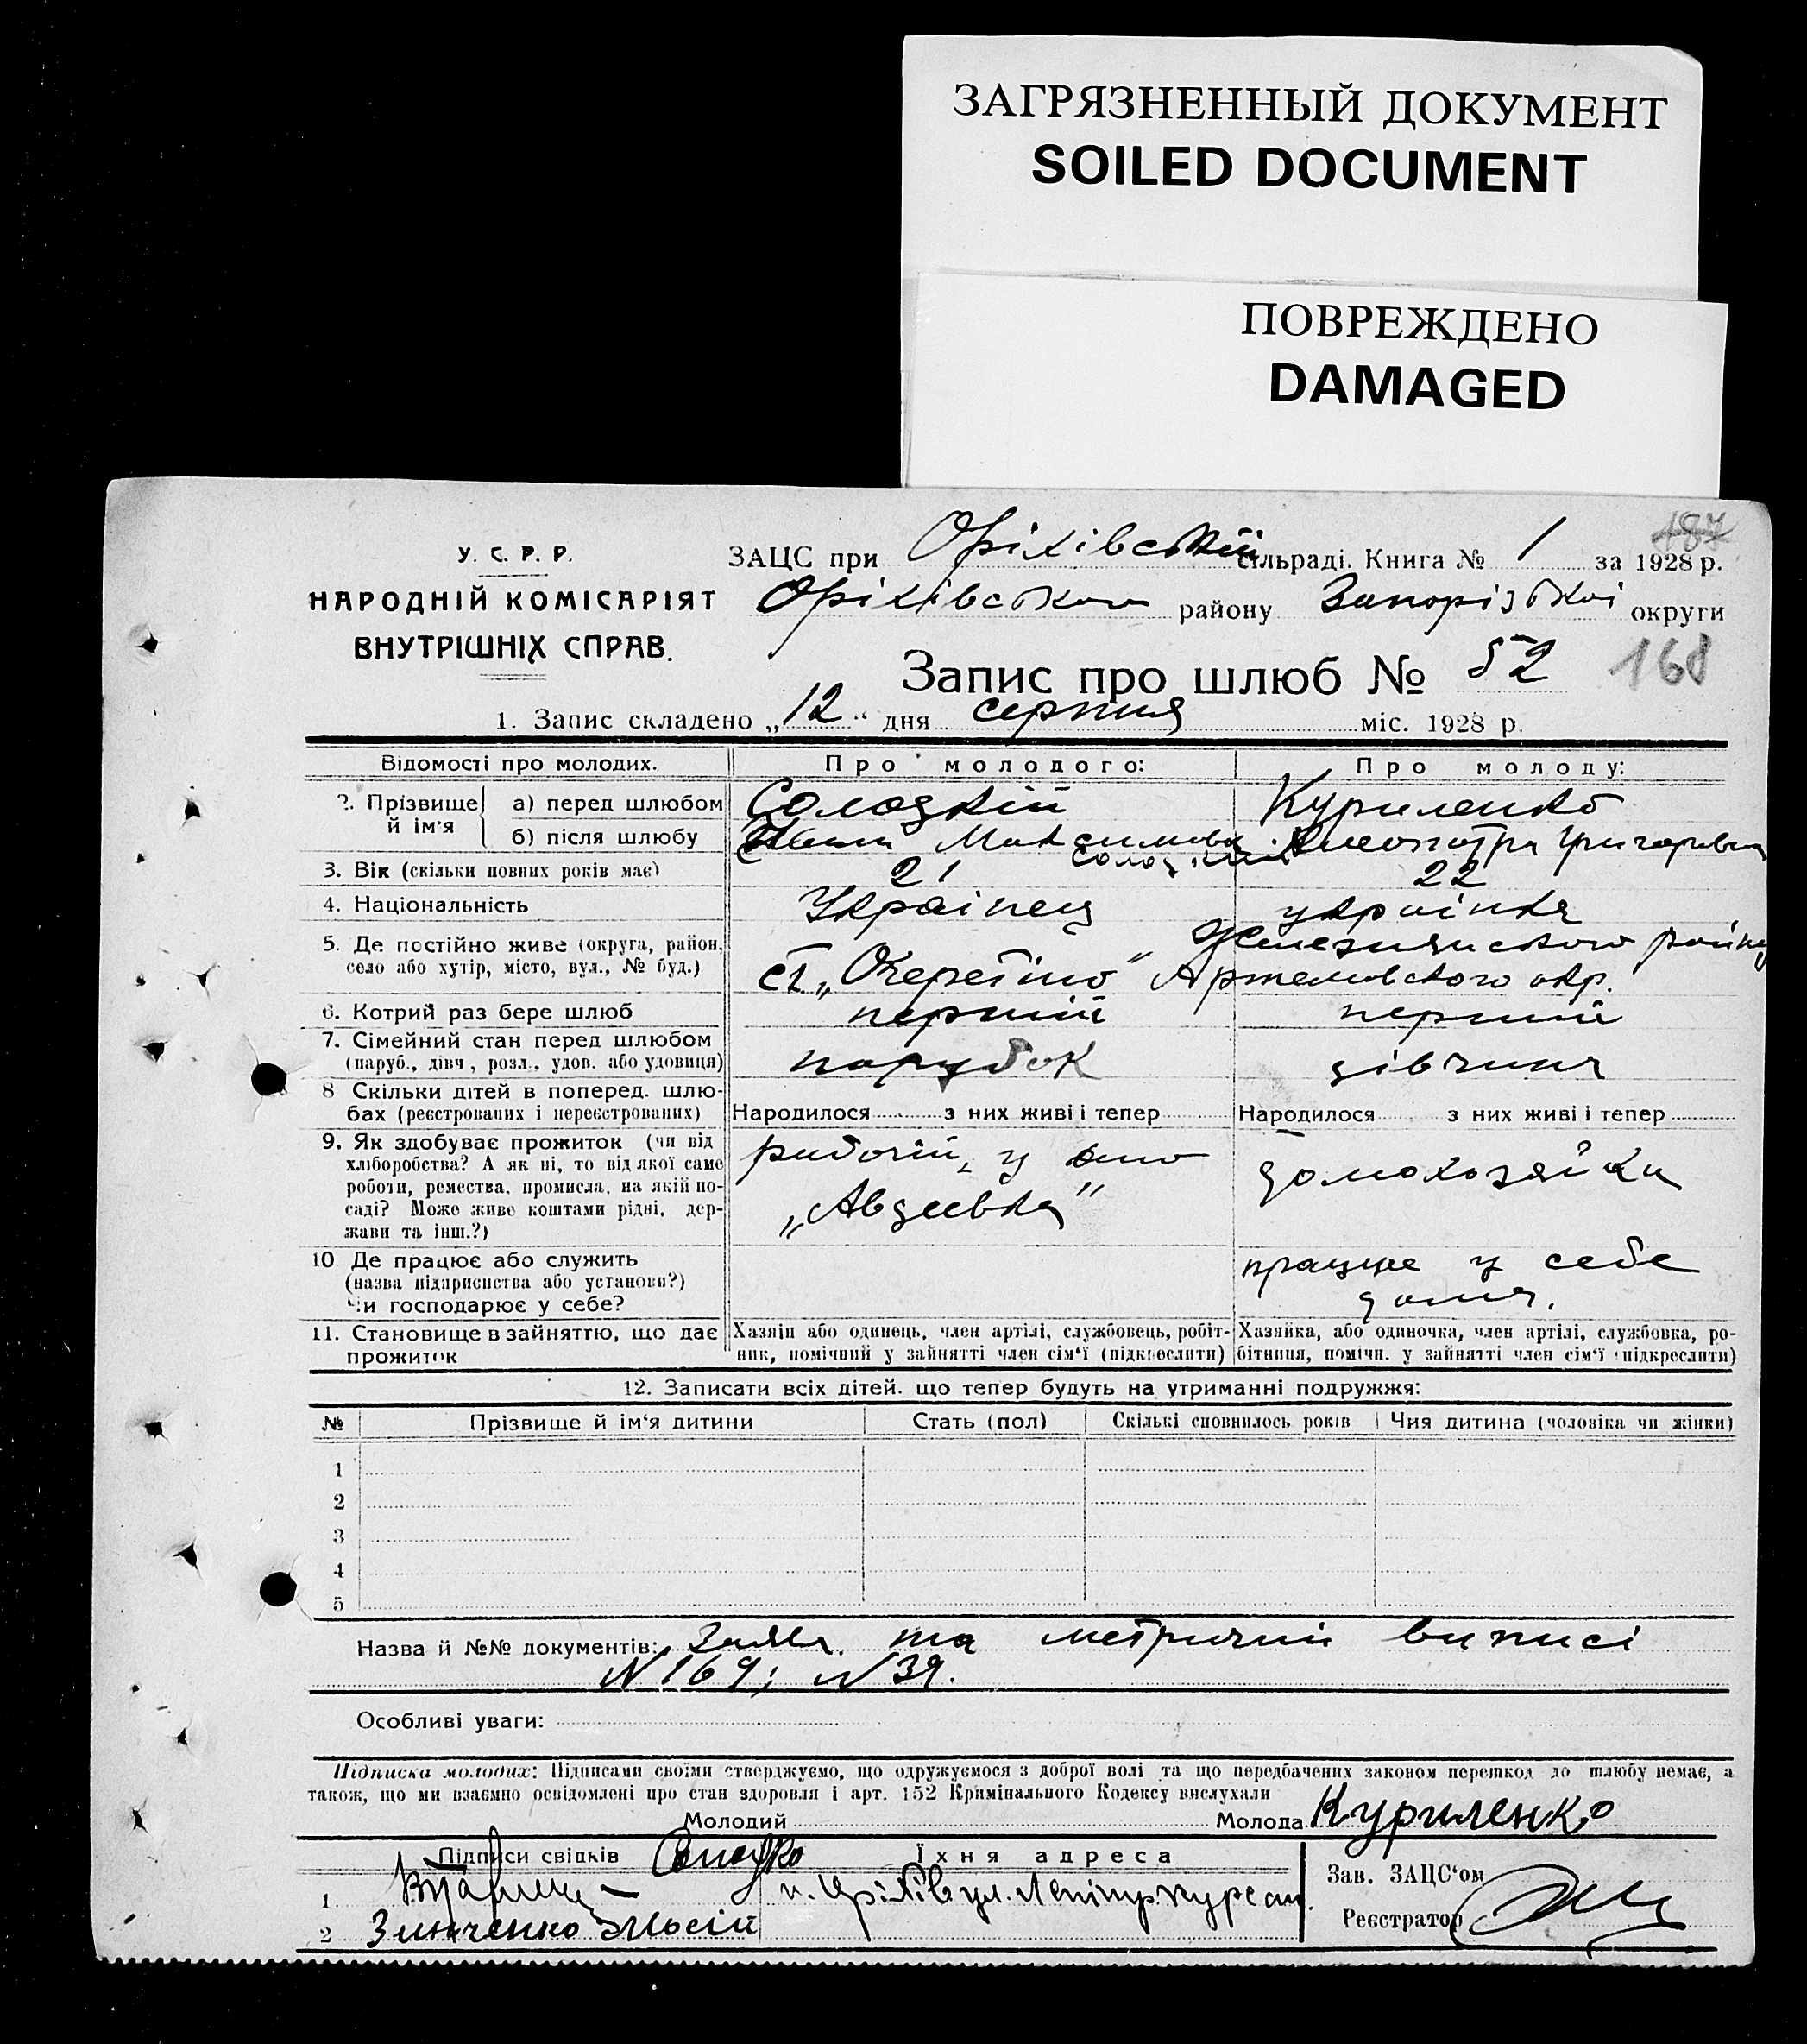 ЗАГРЯЗНЕННЫЙ ДОКУМЕНТ
SOILED DOCUMENT
ПОВРЕЖДЕНО
DAMAGED
187
У. С. Р. Р.
НАРОДНІЙ КОМІСАРІЯТ
ВНУТРІШНІХ СПРАВ.
ЗАЦС при Оріхівській сільраді. Книга № 1 за 1928 р.
Оріхівського району Запорізької округи
Запис про шлюб № 52 168
1. Запис складено „12“ дня серпня міс. 1928 р.
Відомості про молодих. Про молодого: Про молоду:
2. Прізвище й ім'я а) перед шлюбом Солодкій Куриленко
б) після шлюбу Максимов Григоревна
3. Вік (скільки повних років має) 21 22
4. Національність Українец українка
5. Де постійно живе (округа, район, село або хутір, місто, вул., № буд.) ст. „Очеретіно“ района Артемовского окр.
6. Котрий раз бере шлюб перший перший
7. Сімейний стан перед шлюбом (паруб., дівч., розл., удов. або удовиця) парубок дівчина
8 Скільки дітей в поперед. шлюбах (реєстрованих і нереєстрованих) Народилося з них живі і тепер Народилося з них живі і тепер
9. Як здобуває прожиток (чи від хліборобства? А як ні, то від якої саме роботи, ремества, промисла, на якій посаді? Може живе коштами рідні, держави та інш.?) рабочій, у „Авдеевка“ домохозяйка
10 Де працює або служить (назва підприєнства або установи?) Чи господарює у себе? працює у себе дома.
11. Становище в зайняттю, що дає прожиток Хазяін або одинець, член артілі, службовець, робітник, помічний у зайнятті член сім'ї (підкреслити) Хазяйка, або одиночка, член артілі, службовка, робітниця, помічн. у зайнятті член сім'ї (підкреслити)
12. Записати всіх дітей. що тепер будуть на утриманні подружжя:
№ Прізвище й ім'я дитини Стать (пол) Скількі сповнилось років Чия дитина (чоловіка чи жінки)
1
2
3
4
5
Назва й №№ документів: Заява та метричний виписі
N 169; N 39.
Особливі уваги:
Підписка молодих: Підписами своїми стверджуємо, що одружуємося з доброї волі та що передбачених законом перешкод до шлюбу немає, а
також, що ми взаємно освідомлені про стан здоровля і арт. 152 Кримінального Кодексу вислухали
Молодий Молода Куриленко
Підписи свідків Їхня адреса
1
2 Зинченко
Зав. ЗАЦС'ом
Реєстратор